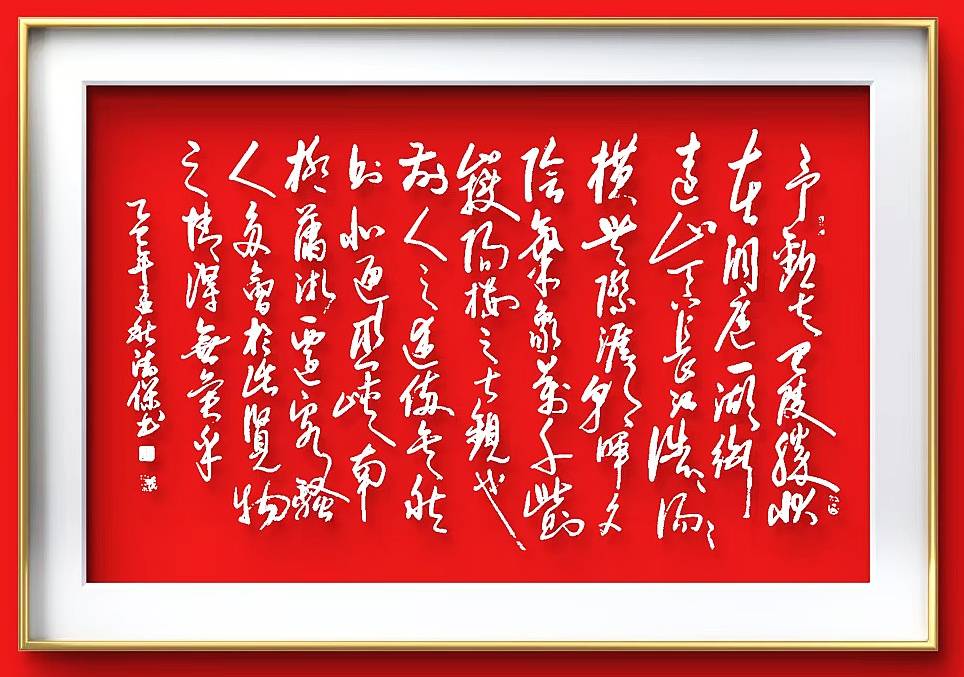 予觀夫巴陵勝狀
在洞庭一湖銜
遠山吞長江浩浩湯湯
橫無際涯朝暉夕
陰氣象萬千此則
嶽陽樓之大觀也
前人之述備矣然
則北通巫峽南
極瀟湘遷客騷
人多會於此覽物
之情得無異乎
乙巳年孟秋保书